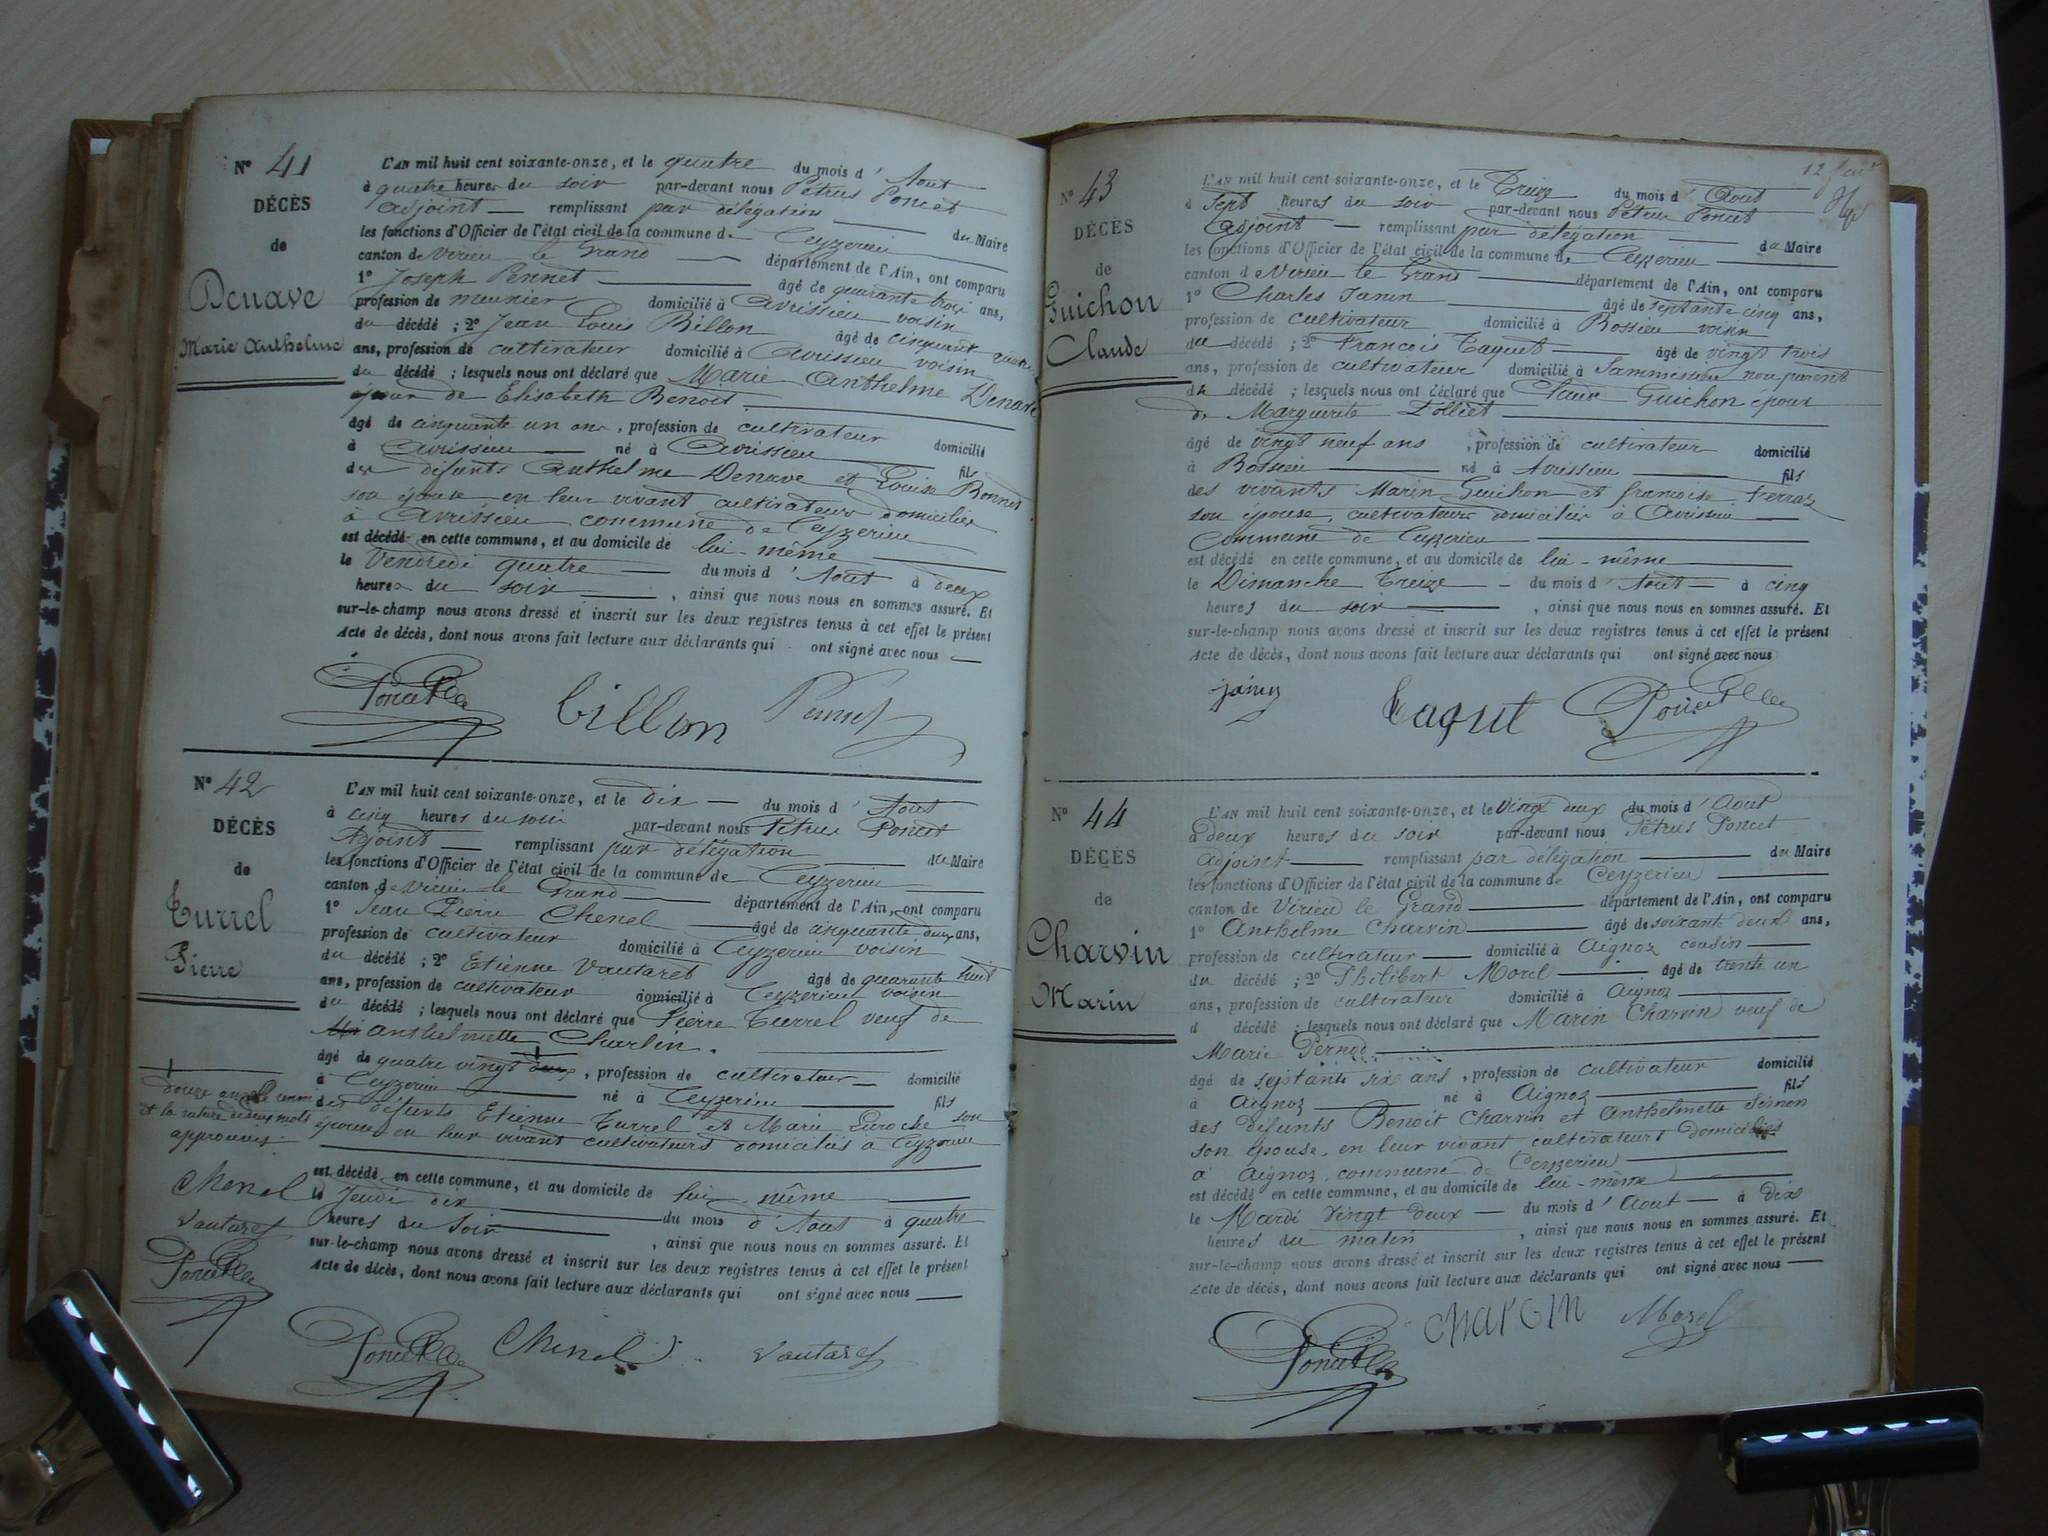 N° 41
DÉCÈS
de
Denave
Marie Anthelme
L'AN mil huit cent soixante-onze, et le quatre du mois d'Aout
à quatre heures du soir par-devant nous Pétrus Poncet
adjoint remplissant par délégation du Maire
les fonctions d'Officier de l'état civil de la commune de Ceyzerieu
canton de Virieu le Grand département de l'Ain, ont comparu
1° Joseph Pennet âgé de quarante trois ans,
profession de meunier domicilié à Avrissieu voisin
du décédé ; 2° Jean Louis Billon âgé de cinquant quatre
ans, profession de cultivateur domicilié à Avrissieu voisin
du décédé ; lesquels nous ont déclaré que Marie Anthelme Denave
époux de Elisabeth Benoit
âgé de cinquante un ans, profession de cultivateur domicilié
à Avrissieu né à Avrissieu fils
des défunts Anthelme Denave et Louise Bonnet
son épouse en leur vivant cultivateurs domiciliés
à Avrissieu commune de Ceyzerieu
est décédé en cette commune, et au domicile de lui-même
le Vendredi quatre du mois d'Aout à deux
heures du soir, ainsi que nous nous en sommes assuré. Et
sur-le-champ nous avons dressé et inscrit sur les deux registres tenus à cet effet le présent
Acte de décès, dont nous avons fait lecture aux déclarants qui ont signé avec nous
Billon Pennet
N° 42
DÉCÈS
de
Turrel
Pierre
L'AN mil huit cent soixante-onze, et le dix du mois d'Aout
à cinq heures du soir par-devant nous Pétrus Poncet
Adjoint remplissant par délégation du Maire
les fonctions d'Officier de l'état civil de la commune de Ceyzerieu
canton de Virieu le Grand département de l'Ain, ont comparu
1° Jean Pierre Chenel âgé de cinquante deux ans,
profession de cultivateur domicilié à Ceyzerieu voisin
du décédé ; 2° Etienne Vautaret âgé de quarante huit
ans, profession de cultivateur domicilié à Ceyzerieu voisin
du décédé ; lesquels nous ont déclaré que Pierre Turrel veuf de
Anthelmette Charlin.
âgé de quatre vingt deux, profession de cultivateur domicilié
à Ceyzerieu né à Ceyzerieu fils
des défunts Etienne Turrel et Marie son
épouse en leur vivant cultivateurs domiciliés à Ceyzerieu
est décédé en cette commune, et au domicile de lui même
le Jeudi dix du mois d'Aout à quatre
heures du soir, ainsi que nous nous en sommes assuré. Et
sur-le-champ nous avons dressé et inscrit sur les deux registres tenus à cet effet le présent
Acte de décès, dont nous avons fait lecture aux déclarants qui ont signé avec nous
douze ans le renvoi
et la rature de deux mots
approuvés.
Chenel
Vautaret
Chenel Vautaret
N° 43
DÉCÈS
de
Guichon
Claude
L'AN mil huit cent soixante-onze, et le Treize du mois d'Aout
à Sept heures du soir par-devant nous Pétrus Poncet
Adjoint remplissant par délégation du Maire
les fonctions d'Officier de l'état civil de la commune de Ceyzerieu
canton de Virieu le Grand département de l'Ain, ont comparu
1° Charles Janin âgé de septante cinq ans,
profession de cultivateur domicilié à Bossieu voisin
du décédé ; 2° François Taquet âgé de vingt trois
ans, profession de cultivateur domicilié à non parent
du décédé ; lesquels nous ont déclaré que Claude Guichon époux
de Marguerite Tolliet
âgé de vingt neuf ans, profession de cultivateur domicilié
à Bossieu né à Avrissieu fils
des vivants Marin Guichon et françoise Ferraz
son épouse, cultivateurs domiciliés à Avrissieu
Commune de Ceyzerieu
est décédé en cette commune, et au domicile de lui-même
le Dimanche Treize du mois d'Aout à cinq
heures du soir, ainsi que nous nous en sommes assuré. Et
sur-le-champ nous avons dressé et inscrit sur les deux registres tenus à cet effet le présent
Acte de décès, dont nous avons fait lecture aux déclarants qui ont signé avec nous
janin Taqut
N° 44
DÉCÈS
de
Charvin
Marin
L'AN mil huit cent soixante-onze, et le Vingt deux du mois d'Aout
à deux heures du soir par-devant nous Pétrus Poncet
adjoint remplissant par délégation du Maire
les fonctions d'Officier de l'état civil de la commune de Ceyzerieu
canton de Virieu le Grand département de l'Ain, ont comparu
1° Anthelme Charvin âgé de soixante deux ans,
profession de cultivateur domicilié à Aignoz cousin
du décédé ; 2° Philibert Morel âgé de trente un
ans, profession de cultivateur domicilié à Aignoz
d décédé ; lesquels nous ont déclaré que Marin Charvin veuf de
Marie Pernod
âgé de septante six ans, profession de cultivateur domicilié
à Aignoz né à Aignoz fils
des défunts Benoit Charvin et Anthelmette
son épouse, en leur vivant cultivateurs domiciliés
à Aignoz, commune de Ceyzerieu
est décédé en cette commune, et au domicile de lui-même
le Mardi vingt deux du mois d'Aout à dix
heures du matin, ainsi que nous nous en sommes assuré. Et
sur-le-champ nous avons dressé et inscrit sur les deux registres tenus à cet effet le présent
Acte de décès, dont nous avons fait lecture aux déclarants qui ont signé avec nous
Morel